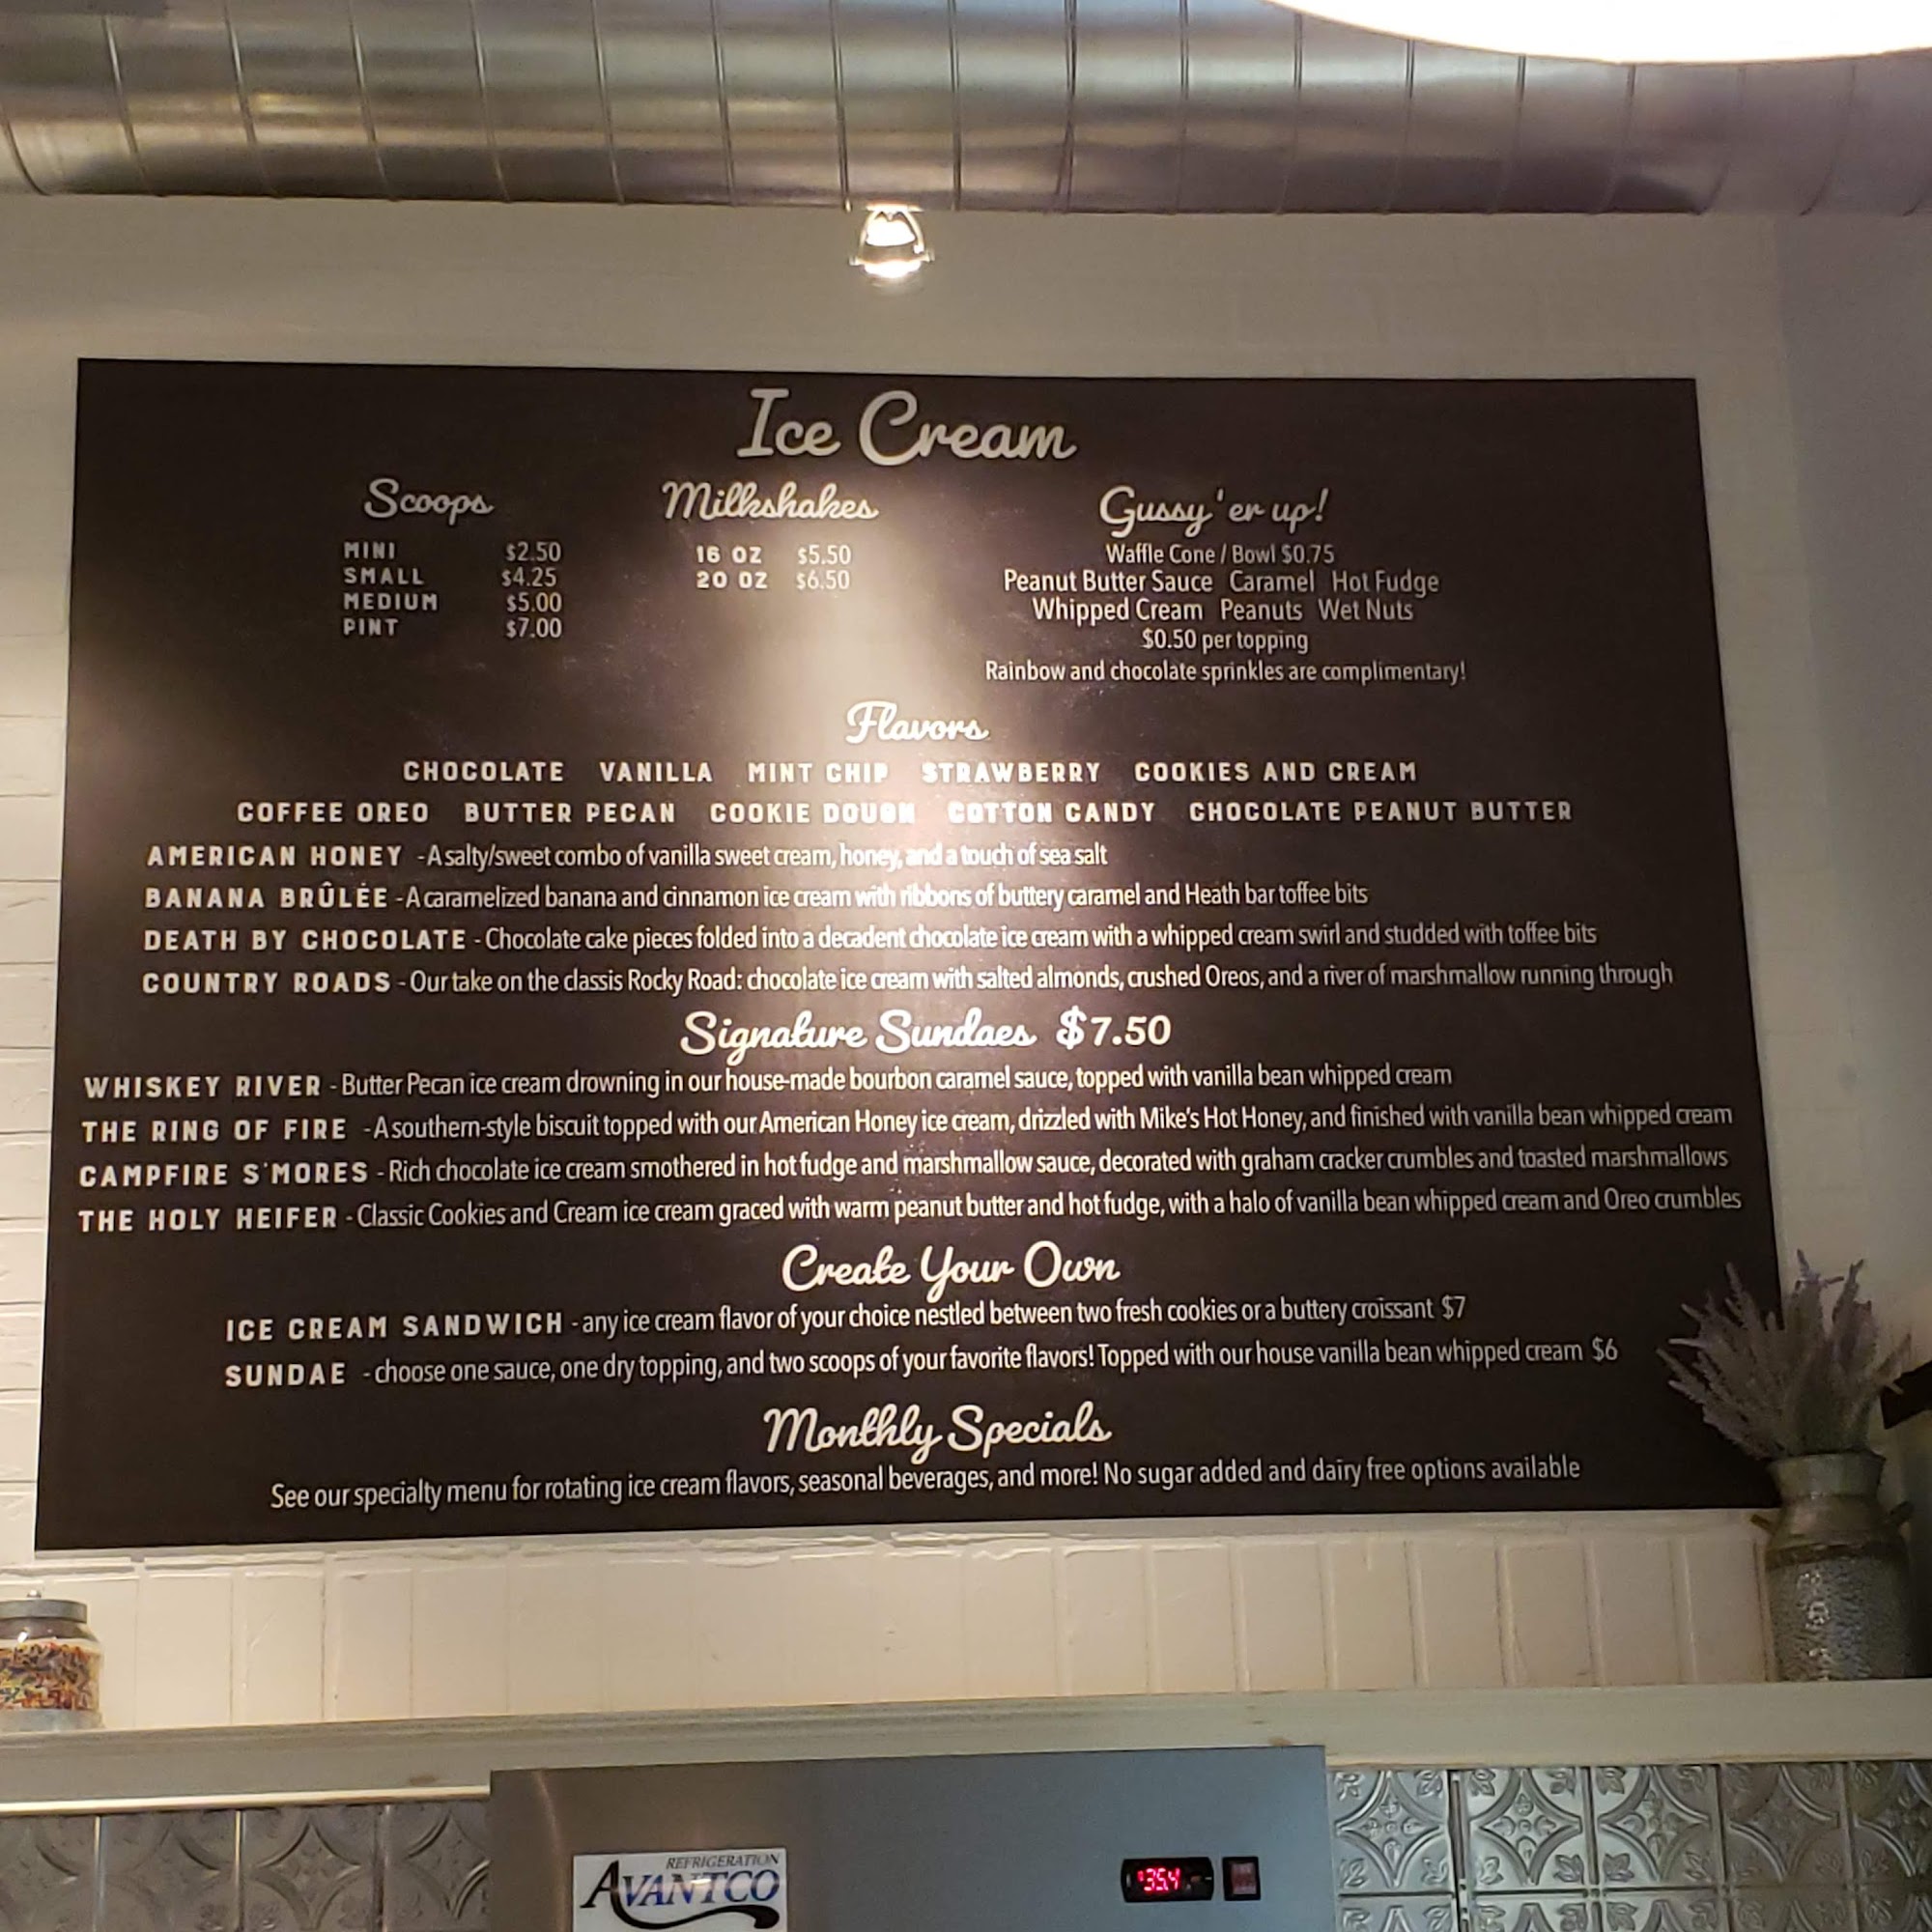 Ice Cream
Scoops
MINI $2.50
SMALL $4.25
MEDIUM $5.00
PINT $7.00
Milkshakes
16 OZ $5.50
20 OZ $6.50
Gussy 'er up!
Waffle Cone / Bowl $0.75
Peanut Butter Sauce Caramel Hot Fudge
Whipped Cream Peanuts Wet Nuts
$0.50 per topping
Rainbow and chocolate sprinkles are complimentary!
Flavors
CHOCOLATE VANILLA MINT CHIP STRAWBERRY COOKIES AND CREAM
COFFEE OREO BUTTER PECAN COOKIE DOUGH COTTON CANDY CHOCOLATE PEANUT BUTTER
AMERICAN HONEY - A salty/sweet combo of vanilla sweet cream, honey, and a touch of sea salt
BANANA BRÛLÉE - A caramelized banana and cinnamon ice cream with ribbons of buttery caramel and Heath bar toffee bits
DEATH BY CHOCOLATE - Chocolate cake pieces folded into a decadent chocolate ice cream with a whipped cream swirl and studded with toffee bits
COUNTRY ROADS - Our take on the classis Rocky Road: chocolate ice cream with salted almonds, crushed Oreos, and a river of marshmallow running through
Signature Sundaes $7.50
WHISKEY RIVER - Butter Pecan ice cream drowning in our house-made bourbon caramel sauce, topped with vanilla bean whipped cream
THE RING OF FIRE - A southern-style biscuit topped with our American Honey ice cream, drizzled with Mike's Hot Honey, and finished with vanilla bean whipped cream
CAMPFIRE S'MORES - Rich chocolate ice cream smothered in hot fudge and marshmallow sauce, decorated with graham cracker crumbles and toasted marshmallows
THE HOLY HEIFER - Classic Cookies and Cream ice cream graced with warm peanut butter and hot fudge, with a halo of vanilla bean whipped cream and Oreo crumbles
Create Your Own
ICE CREAM SANDWICH - any ice cream flavor of your choice nestled between two fresh cookies or a buttery croissant $7
SUNDAE - choose one sauce, one dry topping, and two scoops of your favorite flavors! Topped with our house vanilla bean whipped cream $6
Monthly Specials
See our specialty menu for rotating ice cream flavors, seasonal beverages, and more! No sugar added and dairy free options available
REFRIGERATION
AVANTCO
35.4